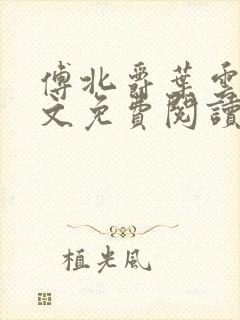 傅北爵葉雲
文免費閱讀
植光風